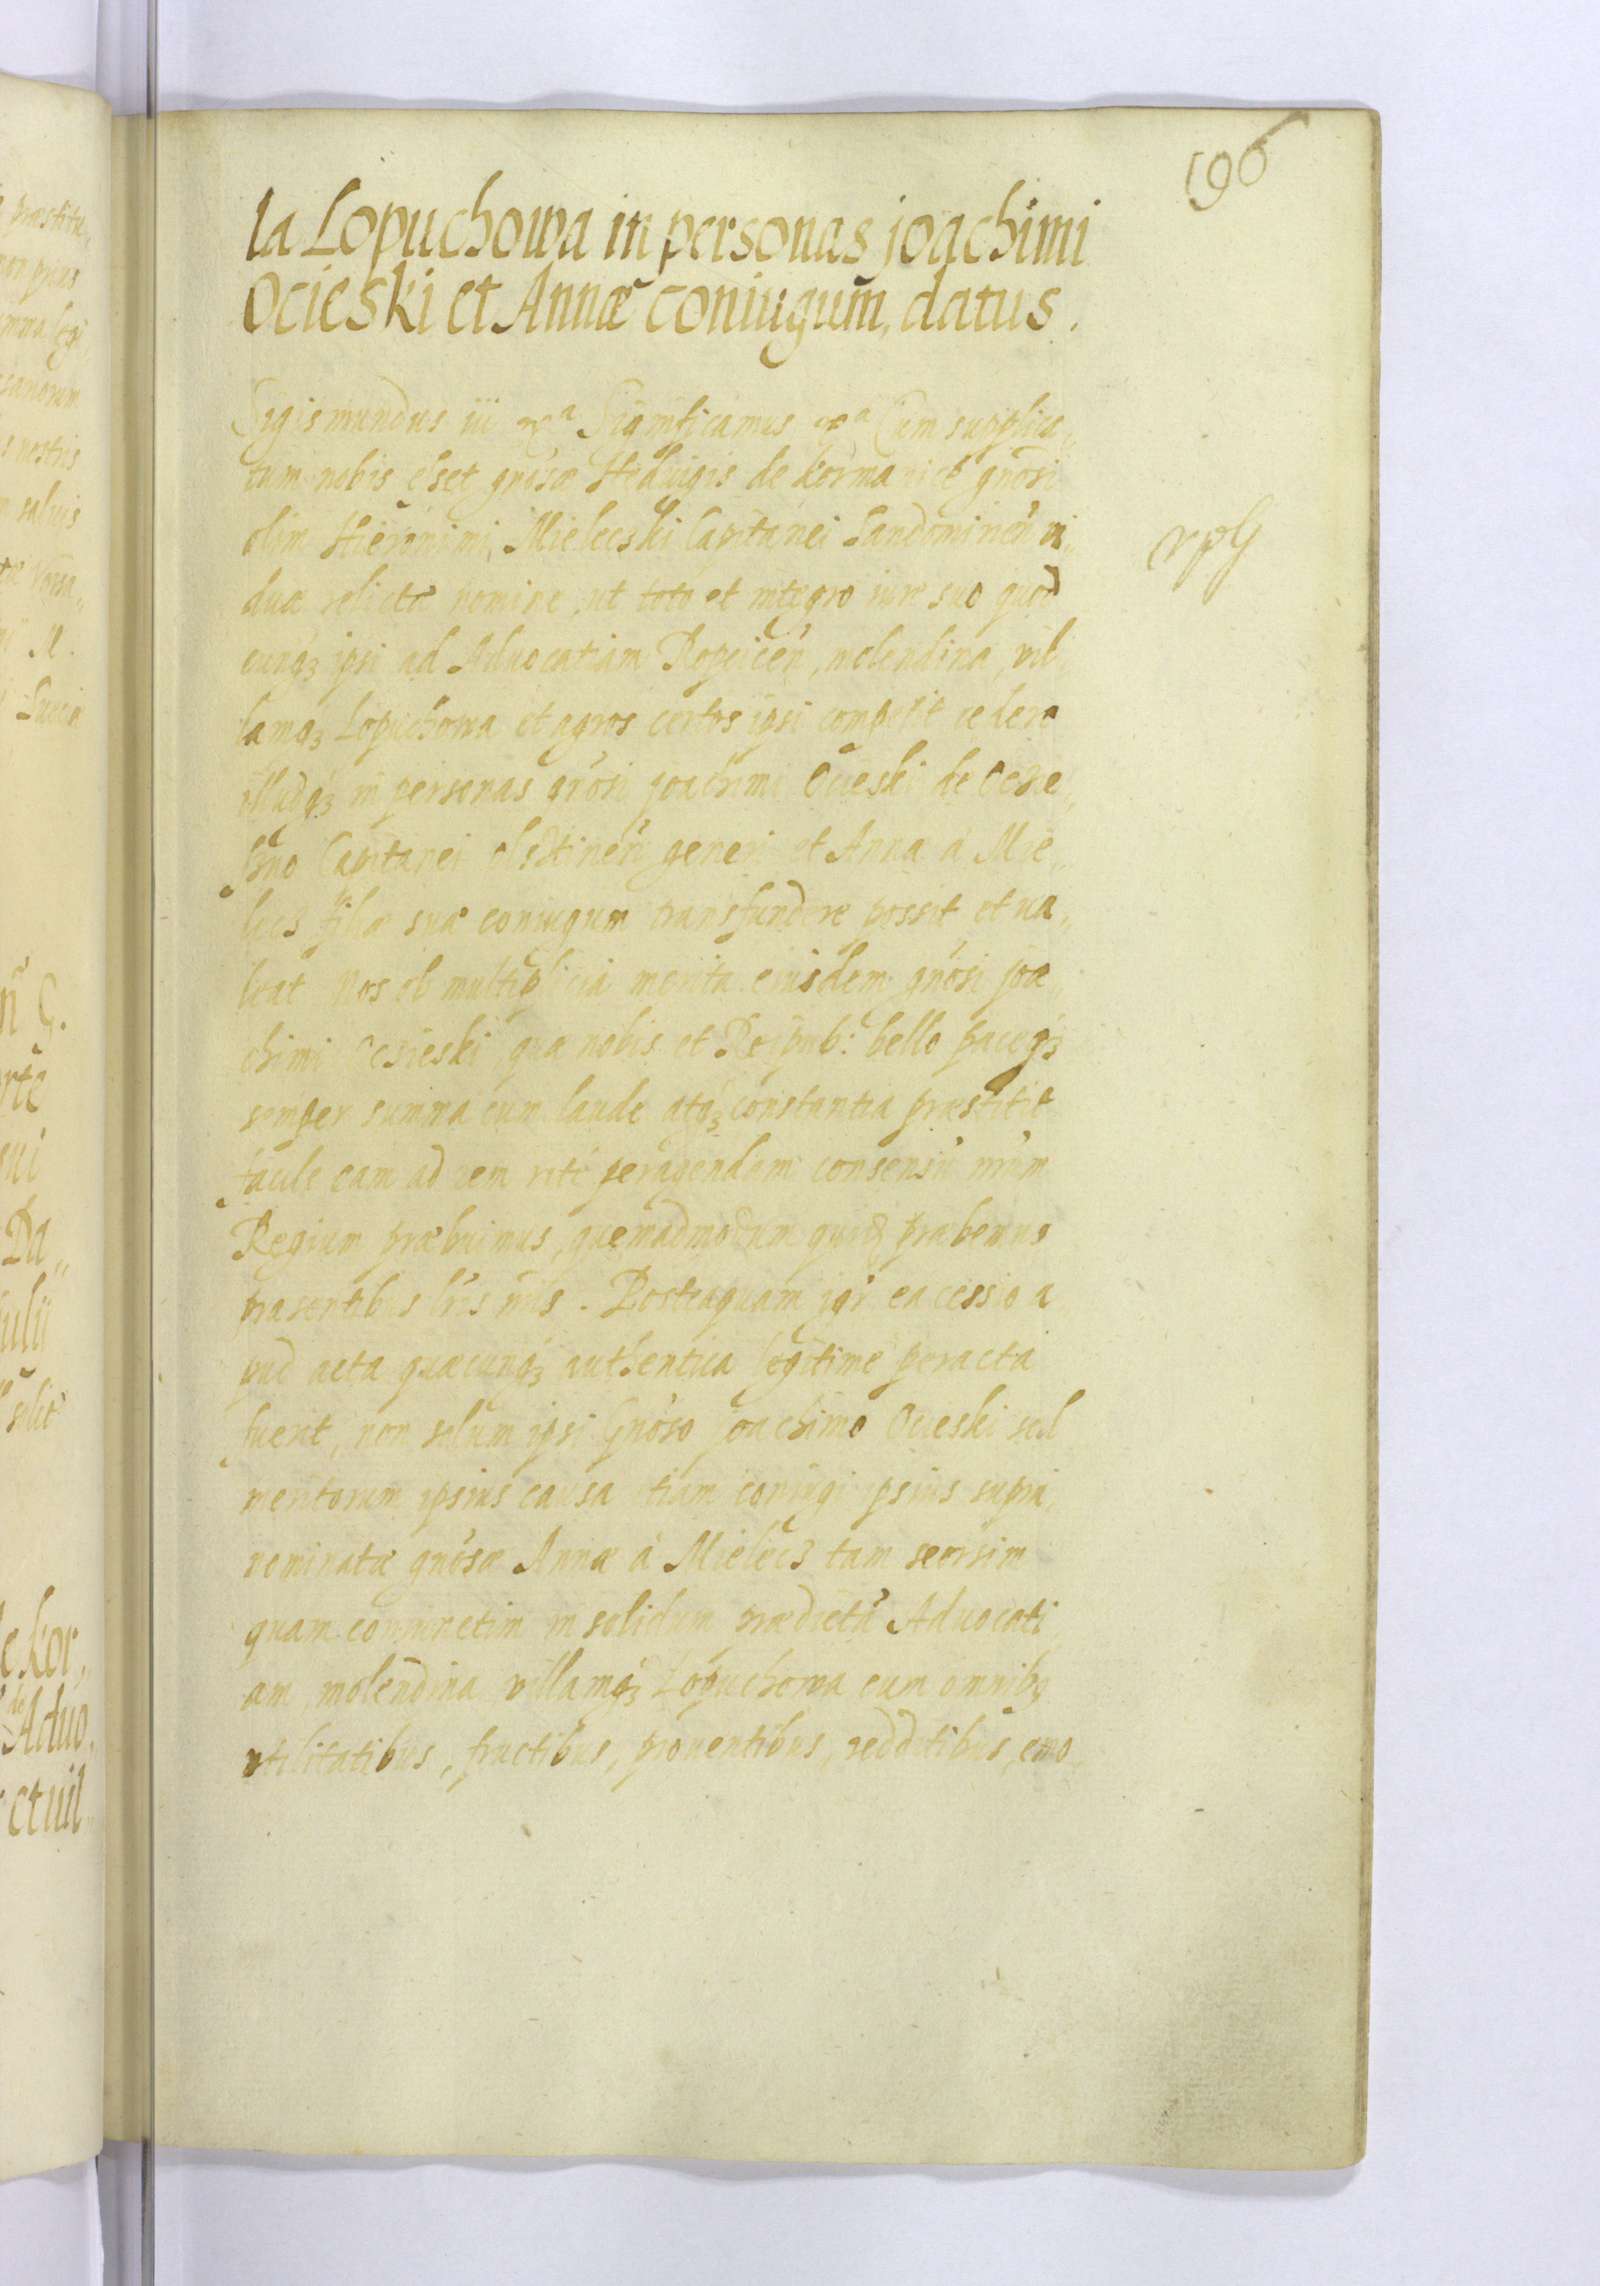 196
la Lopuchowa in personas joachimi
Ocieski et Annæ coniugum, datus.
Sigismundus iii Significamus Cum supplica„
tum nobis esset gnosæ Heduigis de korma gnosi
olim Hieronimi Mielecski Capitanei Sandomirien̄ vi„
duæ relictæ nomine, ut toto et integro iure suo quod
cunq3 ipsi ad Aduocatiam Ropcicen̄, molendina, vil„
lamq3 Lopuchowa et agros certos ipsi competit cedere
illudq3 in personas gnosi joachimi Ocieski de Ocie„
Capitanei olstinen̄ generi et Anna à Mie„
lecz filiæ suæ coniugum transfundere possit et va„
leat Nos ob multiplicia merita eiusdem gnosi joa„
chimi Ocieski quæ nobis et Reipub: bello paceq3
semper summa cum laude atq3 constantia præstitit
facile eam ad rem ritè peragendam consensū nrūm
Regium præbuimus, quemadmodum quidē præbemus
præsentibus lrīs nrīs. Posteaquam igr̄ ea cessio a
pud acta quæcunq3 authentica legitime peracta
fuerit, non solum ipsi Gnoso joachimo Ocieski sed
meritorum ipsius causa etiam coniugi ipsius supra„
nominatæ gnosæ Annæ à Mielecz tam seorsim
quam coniunctim in solidum prædictā Aduocati
am molendina villamq3 Lopuchowa cum omnib3
utilitatibus, fructibus, prouentibus, redditibus, emo„